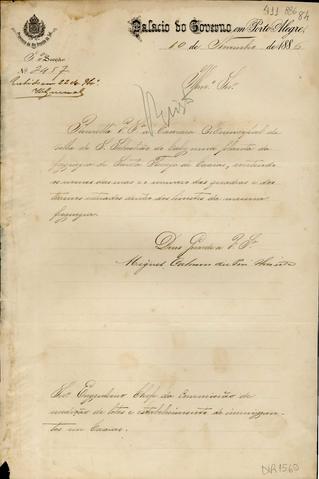 411 A86 84
Palacio do Governo em Porto Alegre,
10 de Novembro de 1886
2ª Secção
Nº 2487
Illmo. Snr.
Remetta V. Sª a Camara Municipal da
villa de S. Sebastião do Cahy uma planta da
freguezia de Santa Thereza de Caxias, contendo
os nomes das ruas e o numero das quadras e dos
terrenos situados dentro dos limites da mesma
freguezia.
Deus Guarde a V. Sª
Miguel
Snr. Engenheiro Chefe da Commissão de
medição de lotes e estabelecimento de immigran-
tes em Caxias.
DVR1560